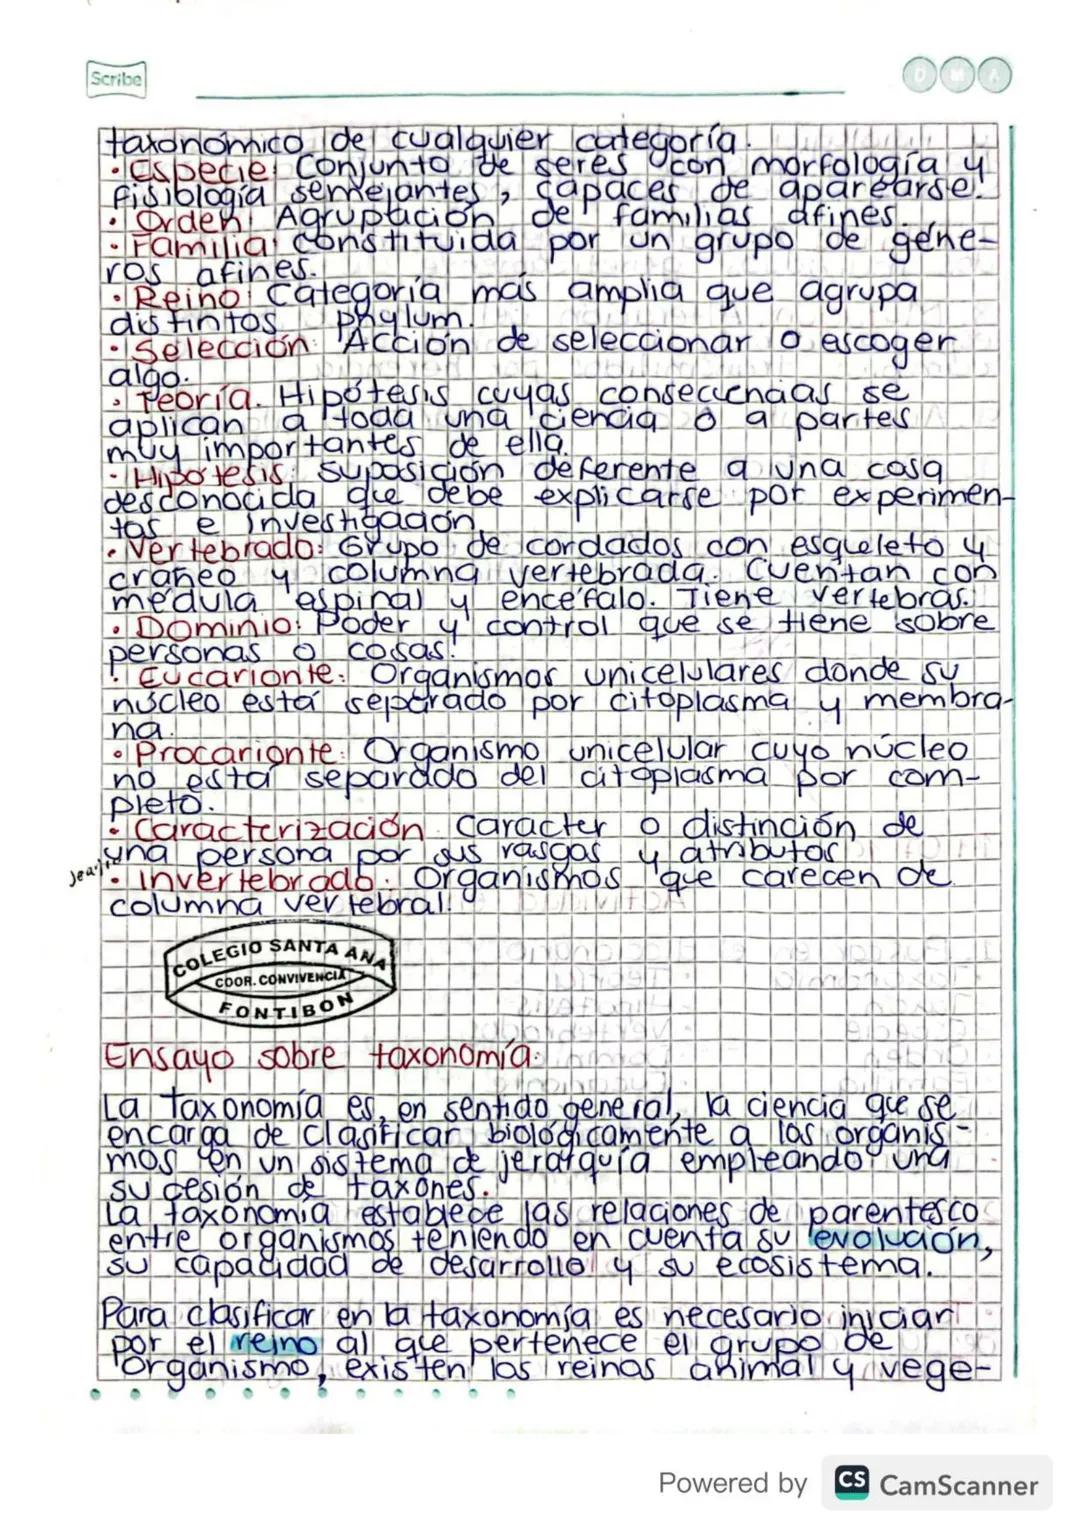 Scribe
D M A
taxonómico de cualquier categoría.
• Especie: Conjunto de seres con morfología y
fisiología semejantes, capaces de aparearse.
• Orden: Agruptación de familias afines.
• Familia: Constituida por un grupo de géne-
ros afines.
• Reino: Categoría más amplia que agrupa
distintos phylum.
• Selección: Acción de seleccionar o escoger
algo.
• Teoría. Hipótesis cuyas consecuencias se
aplican a toda una ciencia o a partes
muy importantes de ella.
• Hipótesis: suposición deferente a una cosa
desconocida que debe explicarse por experimen-
tos e investigación.
• Vertebrado: Grupo de cordados con esqueleto y
craneo y columna vertebrada. Cuentan con
médula espinal y encéfalo. Tiene vertebras.
• Dominio: Poder y control que se tiene sobre
personas o cosas.
• Eucarionte: Organismos unicelulares donde su
núcleo está separado por citoplasma y membra-
na.
• Procarionte: Organismo unicelular cuyo núcleo
no está separado del citoplasma por com-
pleto.
• Caracterización. Caracter o distinción de
una persona por sus rasgos y atributos
• Invertebrado: Organismos que carecen de
columna vertebral.
COLEGIO SANTA ANA
COOR. CONVIVENCIA
FONTIBON
Ensayo sobre taxonomía.
La taxonomía es, en sentido general, la ciencia que se
encarga de clasificar biológicamente a los organis-
mos en un sistema de jerarquía empleando una
sucesión de taxones.
La taxonomía establece las relaciones de parentesco
entre organismos teniendo en cuenta su evolución,
su capacidad de desarrollo y su ecosistema.
Para clasificar en la taxonomía es necesario iniciar
por el reino al que pertenece el grupo de
organismo, existen los reinos animal y vege-
Powered by CS CamScanner